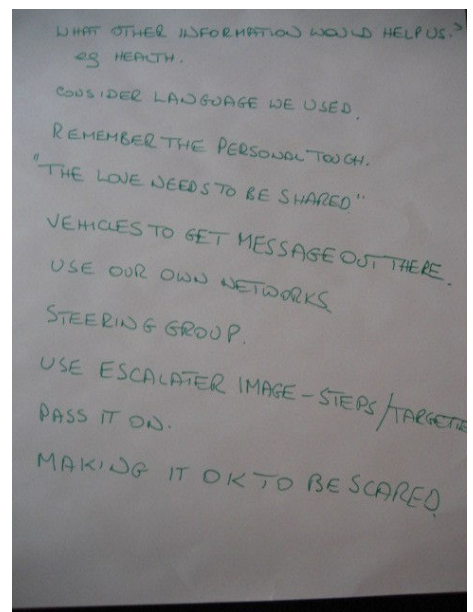 WHAT OTHER INFORMATION WOULD HELP US.?
eg HEALTH.
CONSIDER LANGUAGE WE USED.
REMEMBER THE PERSONAL TOUCH.
"THE LOVE NEEDS TO BE SHARED"
VEHICLES TO GET MESSAGE OUT THERE.
USE OUR OWN NETWORKS
STEERING GROUP.
USE ESCALATER IMAGE - STEPS/TARGETE
PASS IT ON.
MAKING IT OK TO BE SCARED.